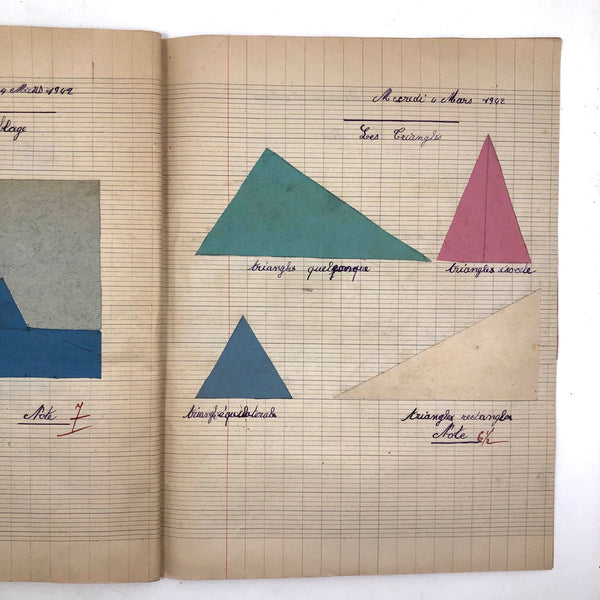 4 Mars 1942
lage
Note 7
Mercredi 4 Mars 1942
Les Triangles
triangles quelquonque
triangles isocèle
triangle équilatérale
triangles rectangles
Note 6½